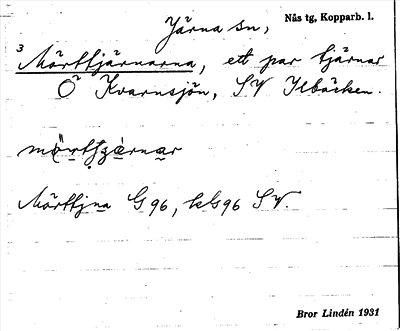 Järna sn, Nås tg, Kopparb. l.
3 Mörttjärnarna, ett par tjärnar
Ö Kvarnsjön, SV Ilbäcken.
Mörttjna G96, kG96 SV.
Bror Lindén 1931